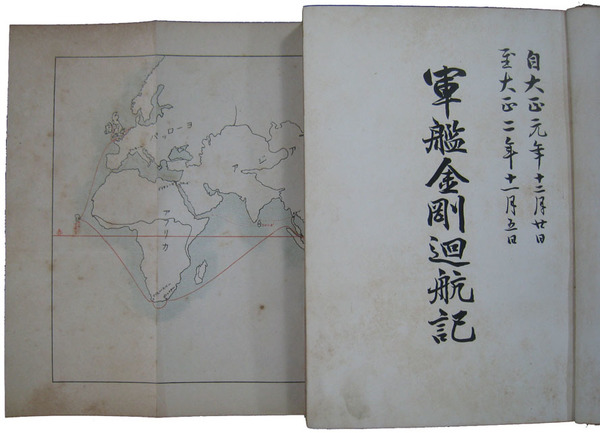 自大正元年十二月廿日
至大正二年十一月五日
軍艦金剛廻航記
ヨーロッパ
アジア
アフリカ